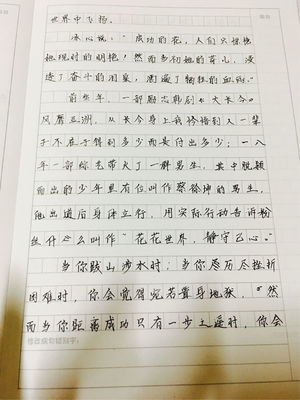 世界中飞扬。
冰心说:“成功的花,人们只惊艳
她现时的明艳!然而当初她的芽儿,浸
透了奋斗的泪泉,洒遍了牺牲的血雨。”
前些年,一部励志韩剧《大长今》
风靡亚洲,从长今身上我体悟到人一辈
子不在于得到多少而是付出多少;一八
年一部综艺带火了一群男生,其中脱颖
而出的少年里有位叫作蔡徐坤的男生,
他出道后身体立行,用实际行动告诉粉
丝什么叫作“花花世界,静守己心。”
当你跋山涉水时;当你历尽挫折
困难时,你会觉得宛若置身地狱,“然
而当你距离成功只有一步之遥时,你会
修改病句错别字: